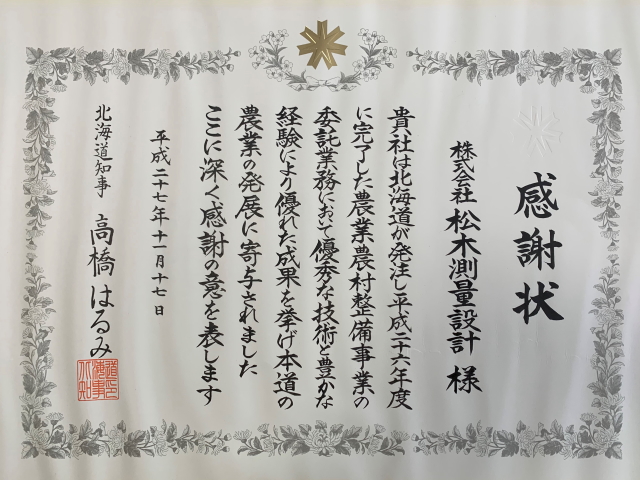 感謝状
株式会社 松木測量設計 様
貴社は北海道が発注し平成二十六年度
に完了した農業農村整備事業の
委託業務において優秀な技術と豊かな
経験により優れた成果を挙げ本道の
農業の発展に寄与されました
ここに深く感謝の意を表します
平成二十七年十一月十七日
北海道知事 高橋はるみ